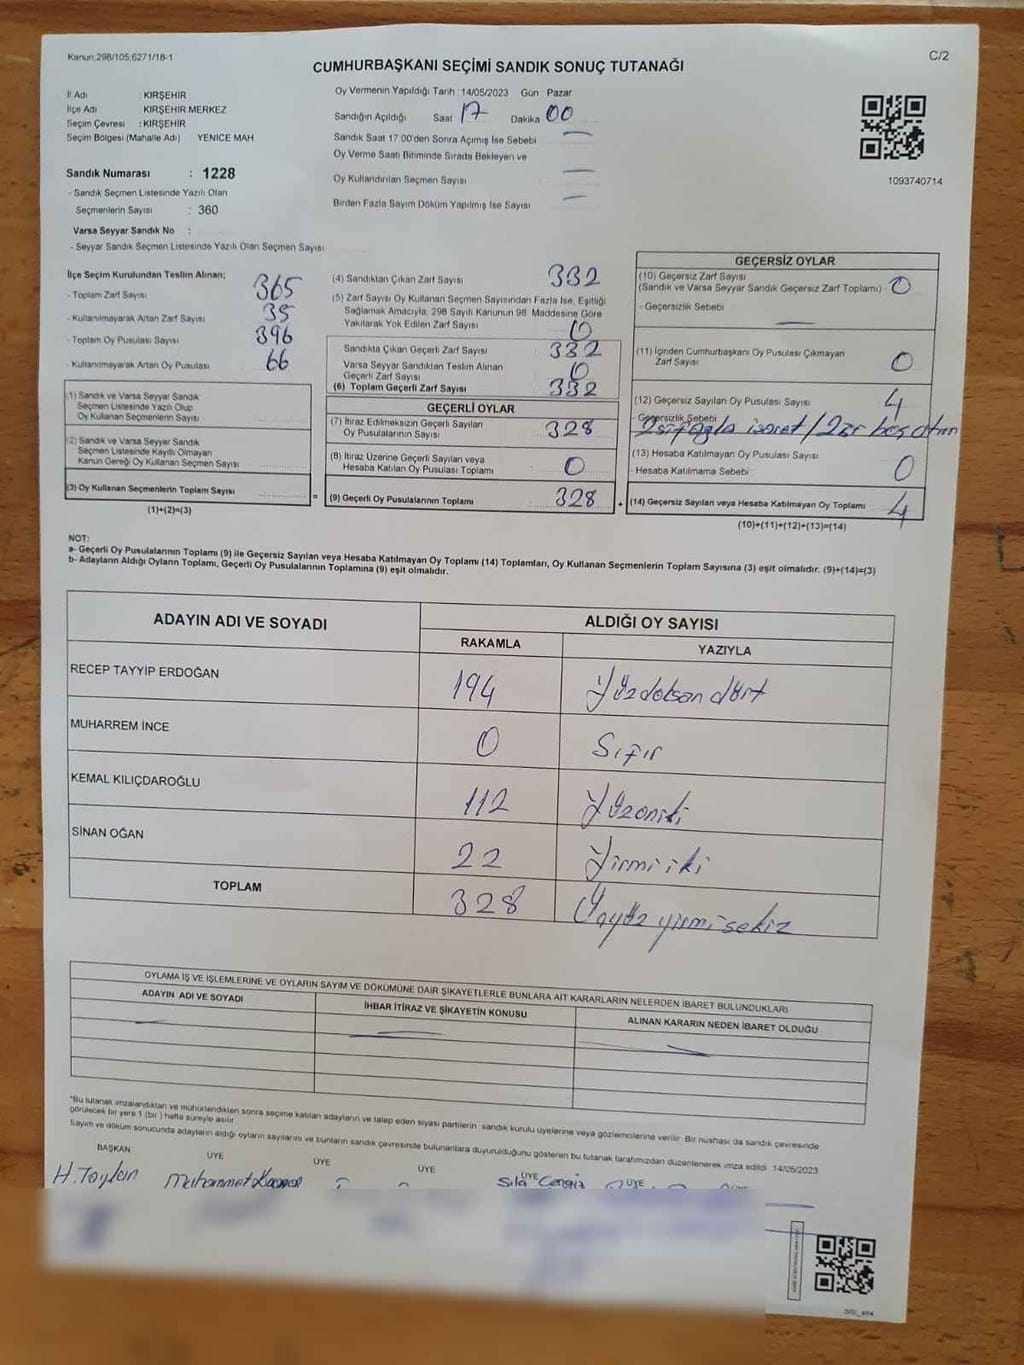 Kanun:298/105;6271/18-1
C/2
CUMHURBAŞKANI SEÇİMİ SANDIK SONUÇ TUTANAĞI
İl Adı : KIRŞEHİR
İlçe Adı : KIRŞEHİR MERKEZ
Seçim Çevresi : KIRŞEHİR
Seçim Bölgesi (Mahalle Adı) YENİCE MAH
Sandık Numarası : 1228
- Sandık Seçmen Listesinde Yazılı Olan
Seçmenlerin Sayısı : 360
Varsa Seyyar Sandık No :
- Seyyar Sandık Seçmen Listesinde Yazılı Olan Seçmen Sayısı
Oy Vermenin Yapıldığı Tarih : 14/05/2023 Gün Pazar
Sandığın Açıldığı Saat 17 Dakika 00
Sandık Saat 17.00'den Sonra Açımış İse Sebebi
Oy Verme Saati Bitiminde Sırada Bekleyen ve
Oy Kullandırılan Seçmen Sayısı
Birden Fazla Sayım Döküm Yapılmış İse Sayısı
1093740714
İlçe Seçim Kurulundan Teslim Alınan;
- Toplam Zarf Sayısı 365
- Kullanılmayarak Artan Zarf Sayısı 35
- Toplam Oy Pusulası Sayısı 396
- Kullanılmayarak Artan Oy Pusulası 66
(1) Sandık ve Varsa Seyyar Sandık
Seçmen Listesinde Yazılı Olup
Oy Kullanan Seçmenlerin Sayısı
(2) Sandık ve Varsa Seyyar Sandık
Seçmen Listesinde Kayıtlı Olmayan
Kanun Gereği Oy Kullanan Seçmen Sayısı
(3) Oy Kullanan Seçmenlerin Toplam Sayısı
(1)+(2)=(3)
(4) Sandıktan Çıkan Zarf Sayısı 332
(5) Zarf Sayısı Oy Kullanan Seçmen Sayısından Fazla İse, Eşitliği
Sağlamak Amacıyla, 298 Sayılı Kanunun 98. Maddesine Göre
Yakılarak Yok Edilen Zarf Sayısı 0
Sandıkta Çıkan Geçerli Zarf Sayısı 332
Varsa Seyyar Sandıktan Teslim Alınan
Geçerli Zarf Sayısı 0
(6) Toplam Geçerli Zarf Sayısı 332
GEÇERLİ OYLAR
(7) İtiraz Edilmeksizin Geçerli Sayılan
Oy Pusulalarının Sayısı 328
(8) İtiraz Üzerine Geçerli Sayılan veya
Hesaba Katılan Oy Pusulası Toplamı 0
= (9) Geçerli Oy Pusulalarının Toplamı 328
GEÇERSİZ OYLAR
(10) Geçersiz Zarf Sayısı
(Sandık ve Varsa Seyyar Sandık Geçersiz Zarf Toplamı) 0
- Geçersizlik Sebebi
(11) İçinden Cumhurbaşkanı Oy Pusulası Çıkmayan
Zarf Sayısı 0
(12) Geçersiz Sayılan Oy Pusulası Sayısı 4
- Geçersizlik Sebebi
(13) Hesaba Katılmayan Oy Pusulası Sayısı 0
- Hesaba Katılmama Sebebi
+ (14) Geçersiz Sayılan veya Hesaba Katılmayan Oy Toplamı 4
(10)+(11)+(12)+(13)=(14)
NOT:
a- Geçerli Oy Pusulalarının Toplamı (9) ile Geçersiz Sayılan veya Hesaba Katılmayan Oy Toplamı (14) Toplamları, Oy Kullanan Seçmenlerin Toplam Sayısına (3) eşit olmalıdır. (9)+(14)=(3)
b- Adayların Aldığı Oyların Toplamı, Geçerli Oy Pusulalarının Toplamına (9) eşit olmalıdır.
ADAYIN ADI VE SOYADI
ALDIĞI OY SAYISI
RAKAMLA YAZIYLA
RECEP TAYYİP ERDOĞAN 194 Yüzdoksan dört
MUHARREM İNCE 0 Sıfır
KEMAL KILIÇDAROĞLU 112 Yüzoniki
SİNAN OĞAN 22 Yirmi iki
TOPLAM 328 Üçyüz yirmi sekiz
OYLAMA İŞ VE İŞLEMLERİNE VE OYLARIN SAYIM VE DÖKÜMÜNE DAİR ŞİKAYETLERLE BUNLARA AİT KARARLARIN NELERDEN İBARET BULUNDUKLARI
ADAYIN ADI VE SOYADI İHBAR İTİRAZ VE ŞİKAYETİN KONUSU ALINAN KARARIN NEDEN İBARET OLDUĞU
*Bu tutanak imzalandıktan ve mühürlendikten sonra seçime katılan adayların ve talep eden siyasi partilerin sandık kurulu üyelerine veya gözlemcilerine verilir. Bir nüshası da sandık çevresinde
görülecek bir yere 1 (bir ) hafta süreyle asılır.
Sayım ve döküm sonucunda adayların aldığı oyların sayılarını ve bunların sandık çevresinde bulunanlara duyurulduğunu gösteren bu tutanak tarafımızdan düzenlenerek imza edildi. 14/05/2023
BAŞKAN ÜYE ÜYE ÜYE ÜYE ÜYE
H. Taylan Muhammet Sıla Cengiz